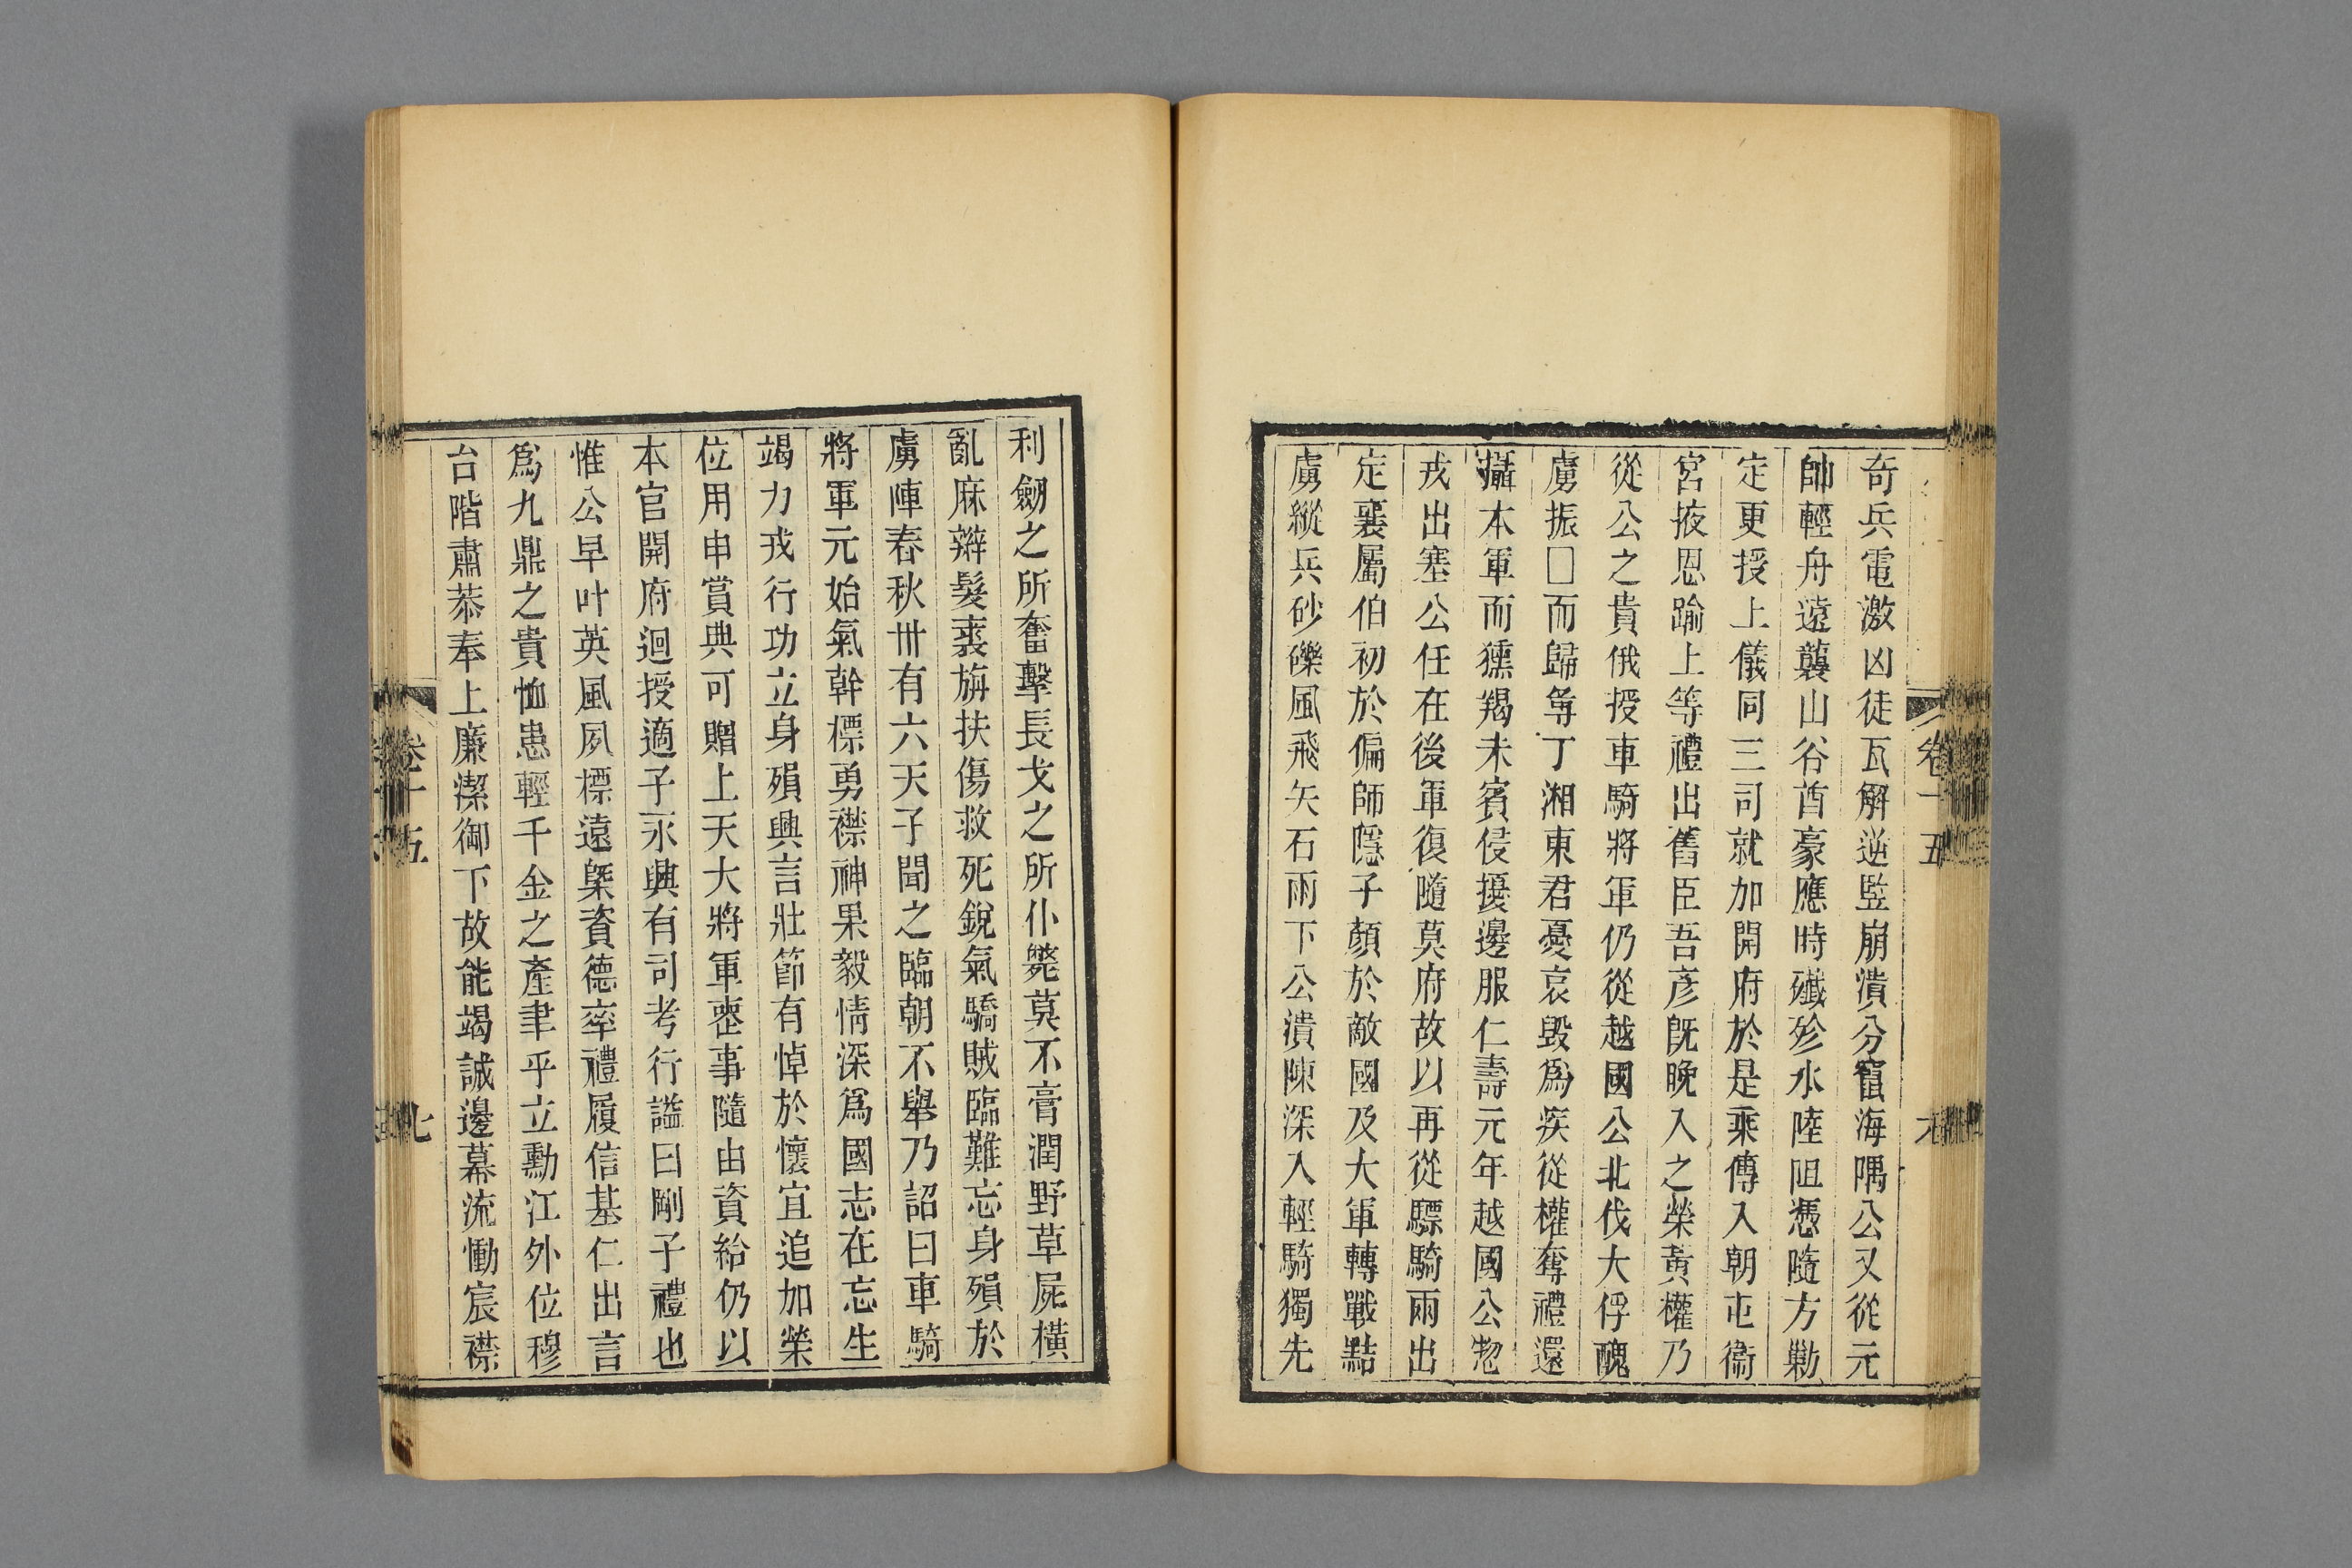 奇兵電激凶徒瓦解逆監崩潰分竄海隅公又從元
帥輕舟遠襲山谷酋豪應時殲殄水陸阻憑隨方勦
定更授上儀同三司就加開府於是乘傳入朝屯衞
宮掖恩踰上等禮出舊臣吾彥旣晚入之榮黃權乃
從公之貴俄授車騎將軍仍從越國公北伐大俘醜
虜振□而歸尋丁湘東君憂哀毀爲疾從權奪禮還
攝本軍而獯羯未賓侵擾邊服仁壽元年越國公惣
戎出塞公任在後軍復隨莫府故以再從驃騎兩出
定襄屬伯初於偏師隱子顏於敵國及大軍轉戰點
虜縱兵砂礫風飛矢石雨下公潰陳深入輕騎獨先
卷十五
利劒之所奮擊長戈之所仆斃莫不膏潤野草屍橫
亂麻辮髮裹旃扶傷救死銳氣驕賊臨難忘身殞於
虜陣春秋卅有六天子聞之臨朝不舉乃詔曰車騎
將軍元始氣幹標勇襟神果毅情深爲國志在忘生
竭力戎行功立身殞興言壯節有悼於懷宜追加榮
位用申賞典可贈上天大將軍塟事隨由資給仍以
本官開府迴授適子永興有司考行謚曰剛子禮也
惟公早叶英風夙標遠槩資德率禮履信基仁出言
爲九鼎之貴恤患輕千金之產聿乎立勳江外位穆
台階肅恭奉上廉潔御下故能竭誠邊幕流慟宸襟
卷十五
七